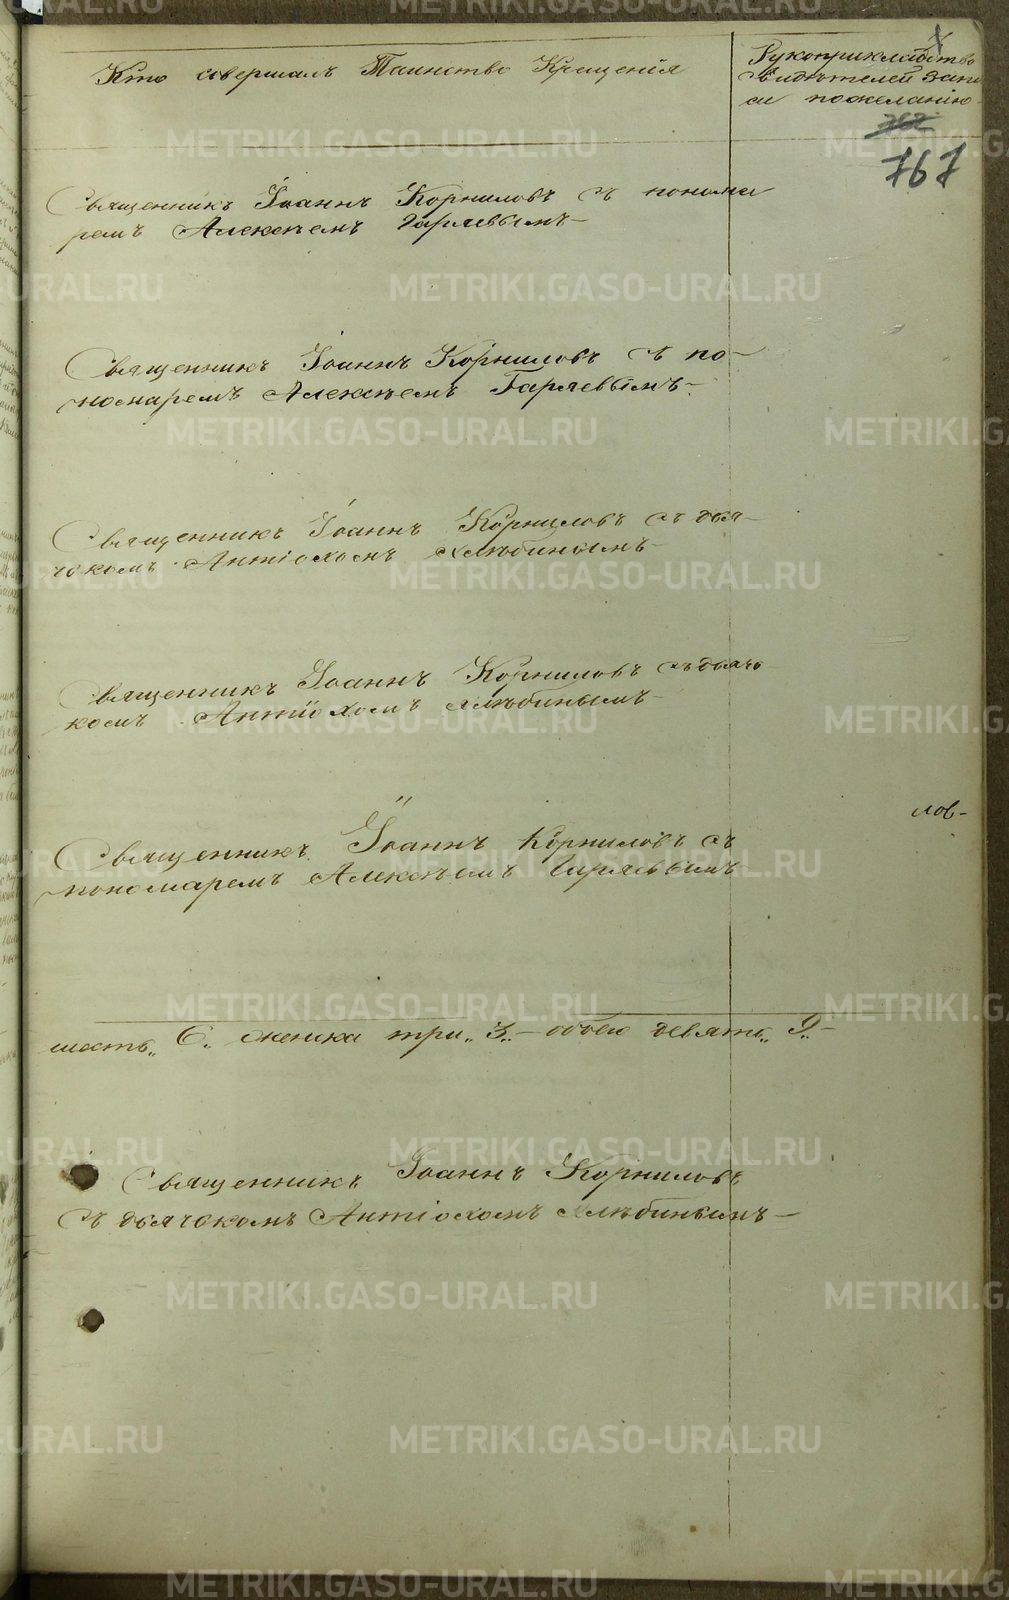 Кто совершалъ Таинство Крещенія
Рукоприкладство
свидѣтелей запи
си по желанію
767
Священникъ Іоаннъ Корниловъ съ понома
ремъ Алексѣемъ Гаряевымъ
Священникъ Іоаннъ Корниловъ съ по-
номаремъ Алексѣемъ Гаряевымъ-
Священникъ Іоаннъ Корниловъ съ дья-
чкомъ Антіохомъ Хлѣбинымъ-
Священникъ Іоаннъ Корниловъ съ дьяч
комъ Антіохомъ Хлѣбинымъ-
лов-
Священникъ Іоаннъ Корниловъ съ
пономаремъ Алексѣемъ Гаряевымъ
шесть„ 6. женска три„ 3.- обоего девять„ 9.-
Священникъ Іоаннъ Корниловъ
съ дьячкомъ Антіохомъ Хлѣбинымъ-
METRIKI.GASO-URAL.RU